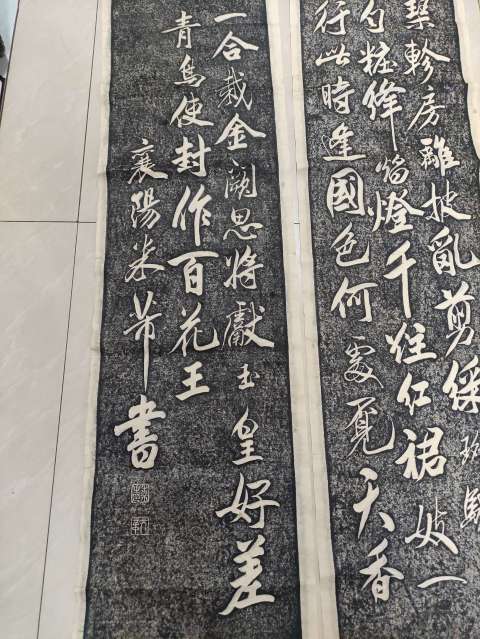 軫房離披亂剪綵斑駁
勻粧絳焰燈千炷紅裙妓一
行此時逢國色何處覓天香
一合栽金闕思將獻玉皇好差
青鳥使封作百花王
襄陽米芾書